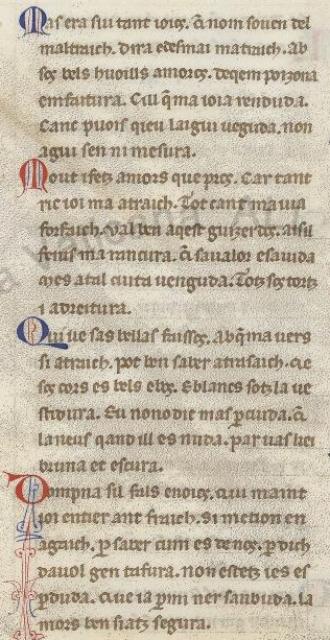 Mas era sui tant ioios. q̃ nom souen del
maltraich. dira edesmai matraich. Ab
sos bels huoills amoros. deqem poizona
emfaitura. Cill q̃ma ioia renduda.
Canc puois qieu laigui ueguda. non
agui sen ni mesura.
Mout ifetz amors que pros. Car tant
ric ioi ma atraich. Tot cant ma uia
forfaich. Val ben aqest guizerdos. aisil
fenis ma rancura. q̃ sa ualor e sa iuda
mes a tal cuita uenguda. Totz sos tortz
i adreitura.
Qui ue sas bellas faissos. Ab q̃ma uers
si atraich. pot ben saber atrasaich. qe
sos cors es bels e bos. E blancs sotz la ue
stidura. Eu non o dic mas p cuida. q̃
la neus qand ill es nuda. par uas liei
bruna et escura.
Dompna sil fals enoios. qui maint
ioi entier ant fraich. Si metion en
agaich. p saber cum es de nos. p dich
dauol gen tafura. non estetz ies es
pduda. qe ia p mi ner saubuda. la
mors ben siatz segura.